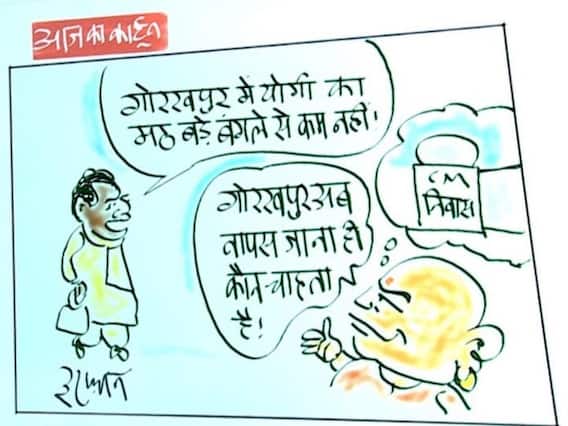 आज का कार्टून
गोरखपुर में योगी का
मठ बड़े बंगले से कम नहीं!
गोरखपुर अब
वापस जाना ही
कौन चाहता
है!
CM
निवास
इरफान